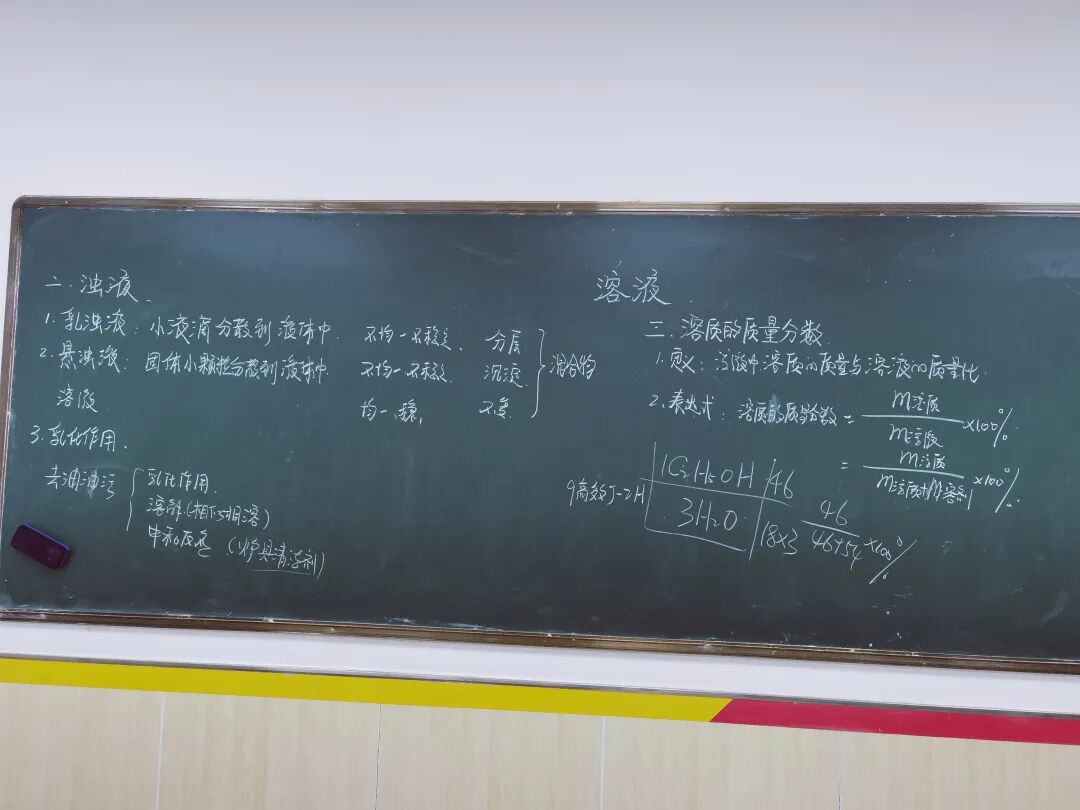 二.浊液.
1.乳浊液:小液滴分散到液体中. 不均一不稳定、分层
2.悬浊液:固体小颗粒分散到液体中 不均一不稳定. 沉淀
溶液. 均一稳定, 不变
} 混合物
3.乳化作用.
去油油污 { 乳化作用.
溶解(相似相溶)
中和反应 (炉具清洁剂)
溶液.
三.溶质的质量分数.
1.定义:溶液中溶质的质量与溶液的质量比.
2.表达式:溶质的质分数 = m溶质/m溶液 ×100%
= m溶质/m溶质+m溶剂 ×100%.
1C2H5OH 46
3H2O. 18×3
46/46+54 ×100%